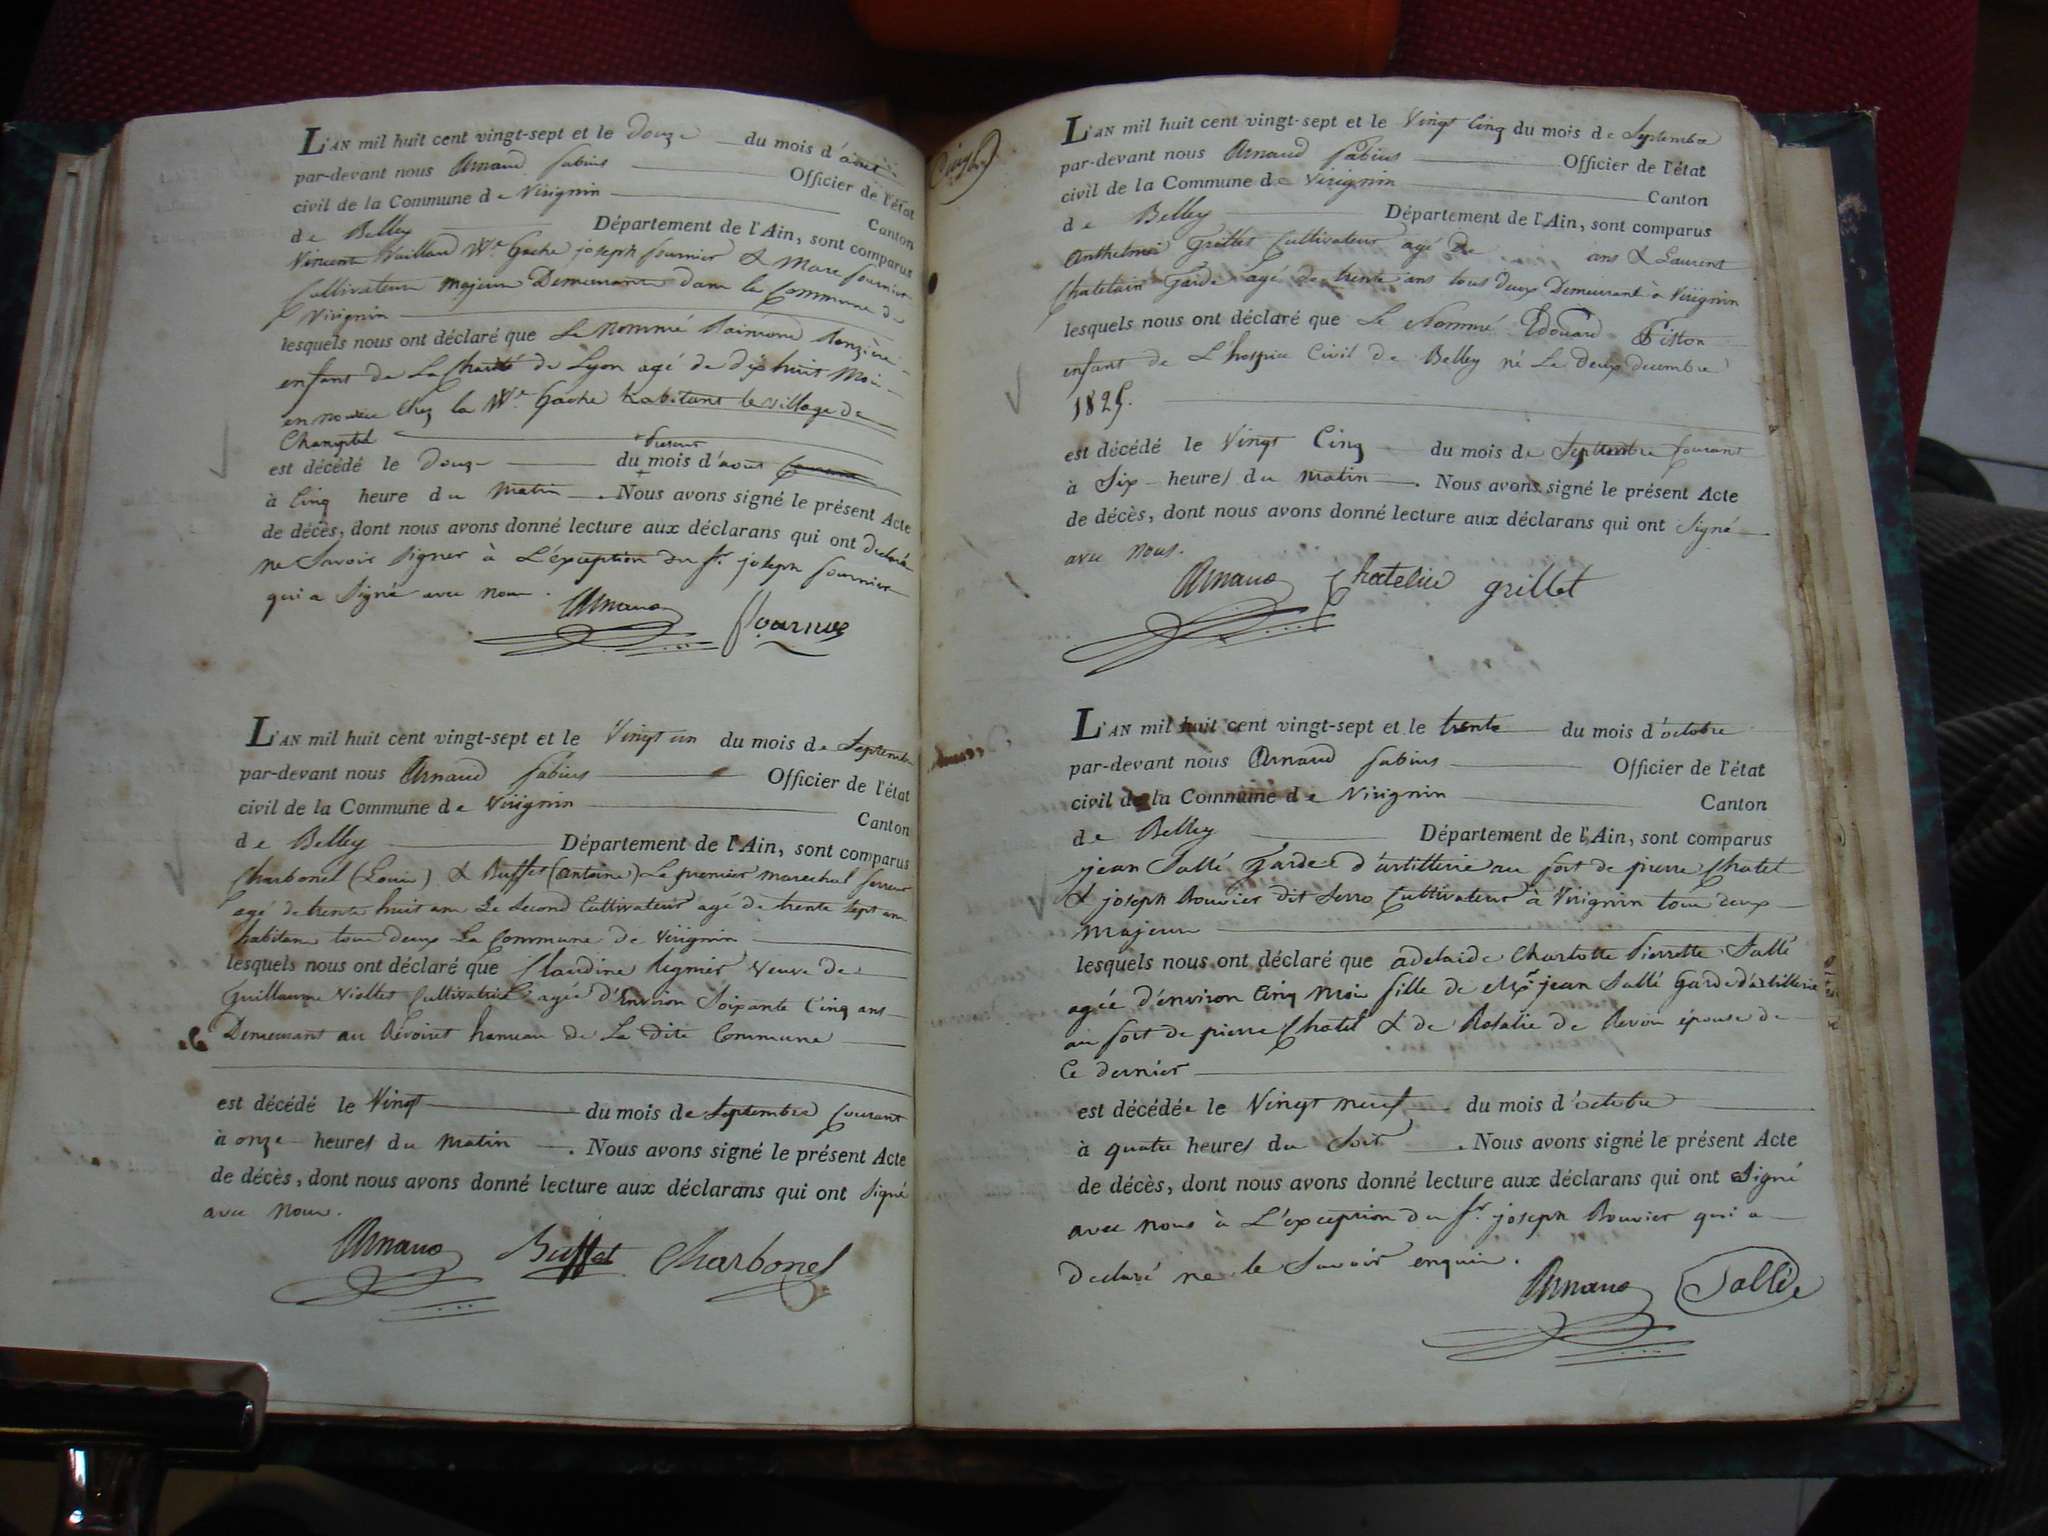 L'AN mil huit cent vingt-sept et le douze du mois d'aout
par-devant nous Arnaud fabius Officier de l'état
civil de la Commune de Virignin Canton
de Belley Département de l'Ain, sont comparus
Vincente Vuillard Ve Gache joseph fournier & Marc fournier
Cultivateurs majeurs Demeurans dans la Commune de
Virignin
lesquels nous ont déclaré que Le nommé Raimond
enfant de La Charité de Lyon agé de dix huit Mois
en nourice chez la Ve Gache habitant le village de
est décédé le douze du present mois d'aout
à Cinq heure du matin . Nous avons signé le présent Acte
de décès, dont nous avons donné lecture aux déclarans qui ont declaré
ne Savoir signer à L'exception du Sr joseph fournier
qui a Signé avec nous.
Arnaud fournier
L'AN mil huit cent vingt-sept et le Vingt un du mois de Septembre
par-devant nous Arnaud fabius Officier de l'état
civil de la Commune de Virignin Canton
de Belley Département de l'Ain, sont comparus
Charbonel (Louis) & Buffet (antoine) Le premier marechal ferrant
agé de trente huit ans Le Second Cultivateur agé de trente sept ans
habitans tous deux La Commune de Virignin
lesquels nous ont déclaré que Claudine Regnier Veuve de
Guillaume Viollet Cultivatrice agée d'Environ Soixante Cinq ans
Demeurant au Revoiret hameau de La dite Commune
est décédé le Vingt du mois de Septembre Courant
à onze heures du matin . Nous avons signé le présent Acte
de décès, dont nous avons donné lecture aux déclarans qui ont signé
avec nous.
Arnaud Buffet Charbonel
L'AN mil huit cent vingt-sept et le Vingt Cinq du mois de Septembre
par-devant nous Arnaud fabius Officier de l'état
civil de la Commune de Virignin Canton
de Belley Département de l'Ain, sont comparus
Anthelme Grillet Cultivateur agé de ans & Laurent
Chatelain Garde agé de trente ans tous deux Demeurant à Virignin
lesquels nous ont déclaré que Le Nommé Edouard Piston
enfant de L'hospice Civil de Belley né Le deux decembre
1825.
est décédé le Vingt Cinq du mois de Septembre Courant
à Six heures du matin . Nous avons signé le présent Acte
de décès, dont nous avons donné lecture aux déclarans qui ont Signé
avec nous.
Arnaud Chatelin grillet
L'AN mil huit cent vingt-sept et le trente du mois d'octobre
par-devant nous Arnaud fabius Officier de l'état
civil de la Commune de Virignin Canton
de Belley Département de l'Ain, sont comparus
jean Sallé Garde d'artillerie au fort de pierre Chatel
& joseph Bouvier dit Serro Cultivateur à Virignin tous deux
majeurs
lesquels nous ont déclaré que adelaide Charlotte Pierrette Sallé
agée d'environ Cinq mois fille de Mr jean Sallé Garde d'artillerie
au fort de pierre Chatel & de Rosalie de Revoin épouse de
Ce dernier
est décédée le Vingt neuf du mois d'octobre
à quatre heures du Soir . Nous avons signé le présent Acte
de décès, dont nous avons donné lecture aux déclarans qui ont Signé
avec nous à L'exception du Sr joseph Bouvier qui a
declaré ne le Savoir enquis.
Arnaud Sallé